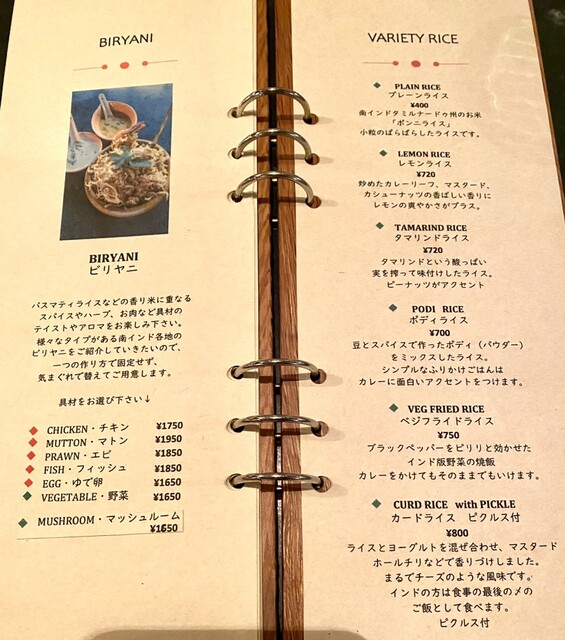 BIRYANI
BIRYANI
ビリヤニ
バスマティライスなどの香り米に重なる
スパイスやハーブ、お肉など具材の
テイストやアロマをお楽しみ下さい。
様々なタイプがある南インド各地の
ビリヤニをご紹介していきたいので、
一つの作り方で固定せず、
気まぐれで替えてご用意します。
具材をお選び下さい↓
CHICKEN・チキン ¥1750
MUTTON・マトン ¥1950
PRAWN・エビ ¥1850
FISH・フィッシュ ¥1850
EGG・ゆで卵 ¥1650
VEGETABLE・野菜 ¥1650
MUSHROOM・マッシュルーム
¥1650
VARIETY RICE
PLAIN RICE
プレーンライス
¥400
南インドタミルナードゥ州のお米
「ポンニライス」
小粒のぱらぱらしたライスです。
LEMON RICE
レモンライス
¥720
炒めたカレーリーフ、マスタード、
カシューナッツの香ばしい香りに
レモンの爽やかさがプラス。
TAMARIND RICE
タマリンドライス
¥720
タマリンドという酸っぱい
実を搾って味付けしたライス。
ピーナッツがアクセント
PODI RICE
ポディライス
¥700
豆とスパイスで作ったポディ（パウダー）
をミックスしたライス。
シンプルなふりかけごはんは
カレーに面白いアクセントをつけます。
VEG FRIED RICE
ベジフライドライス
¥750
ブラックペッパーをピリリと効かせた
インド版野菜の焼飯
カレーをかけてもそのままでもいけます。
CURD RICE with PICKLE
カードライス ピクルス付
¥800
ライスとヨーグルトを混ぜ合わせ、マスタード
ホールチリなどで香りづけしました。
まるでチーズのような風味です。
インドの方は食事の最後の〆の
ご飯として食べます。
ピクルス付